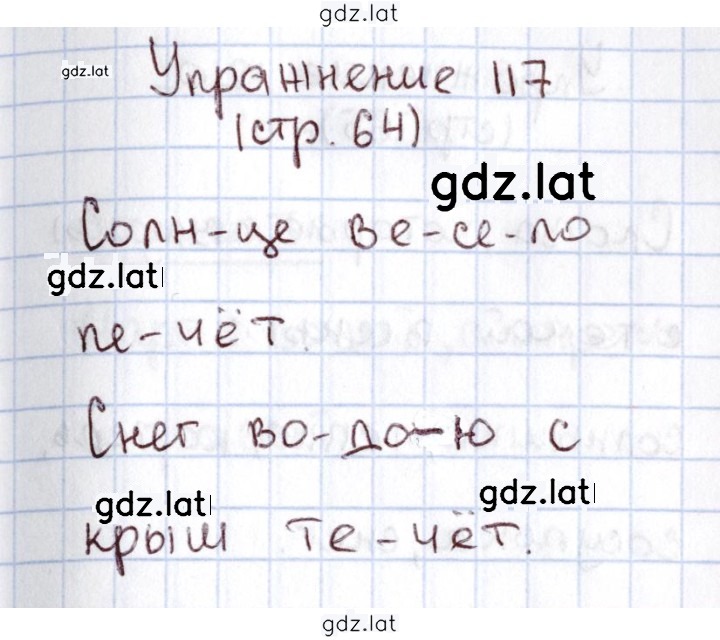 gdz.lat
gdz.lat
Упражнение 117
(стр. 64)
gdz.lat
Солн-це ве-се-ло
gdz.lat
пе-чёт.
Снег во-до-ю с
gdz.lat gdz.lat
крыш те-чёт.
gdz.lat